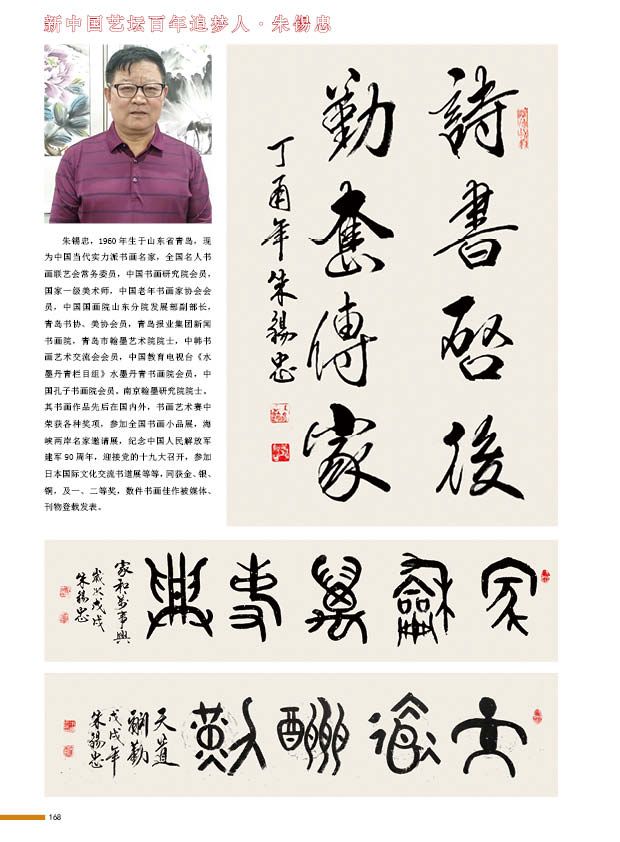 新中国艺坛百年追梦人·朱锡忠
朱锡忠，1960 年生于山东省青岛，现
为中国当代实力派书画名家，全国名人书
画联艺会常务委员，中国书画研究院会员，
国家一级美术师，中国老年书画家协会会
员，中国国画院山东分院发展部副部长，
青岛书协、美协会员，青岛报业集团新闻
书画院，青岛市翰墨艺术院院士，中韩书
画艺术交流会会员，中国教育电视台《水
墨丹青栏目组》水墨丹青书画院会员，中
国孔子书画院会员。南京翰墨研究院院士。
其书画作品先后在国内外，书画艺术赛中
荣获各种奖项，参加全国书画小品展，海
峡两岸名家邀请展，纪念中国人民解放军
建军 90 周年，迎接党的十九大召开，参加
日本国际文化交流书道展等等，同获金、银、
铜，及一、二等奖，数件书画佳作被媒体、
刊物登载发表。
詩書啓後
勤奮傳家
丁酉年朱錫忠
家龢萬事興
家和萬事興
歲次戊戌
朱錫忠
天道酬勤
天道
酬勤
戊戌年
朱錫忠
168